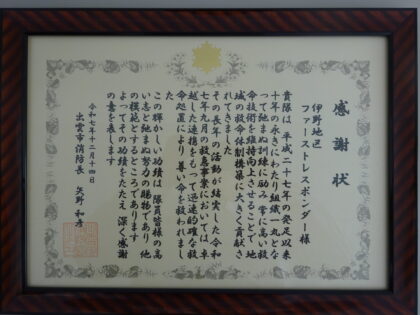 感謝状
伊野地区
ファーストレスポンダー様
貴隊は 平成二十七年の発足以来
十年の永きにわたり組織一丸となっ
て弛まぬ訓練に励み 常に高い救
命技術を維持向上させることで 地
域の救命体制構築に大きく貢献さ
れてきました
その長年の活動が結実した 令和
七年九月の救急事案においては 卓
越した連携をもって迅速的確な救
命処置により 尊い命を救われまし
た
この輝かしい功績は 隊員皆様の高
い志と弛まぬ努力の賜物であり 他
の模範とするところであります
よってその功績をたたえ 深く感謝
の意を表します
令和七年十二月十四日
出雲市消防長 矢野 和彦